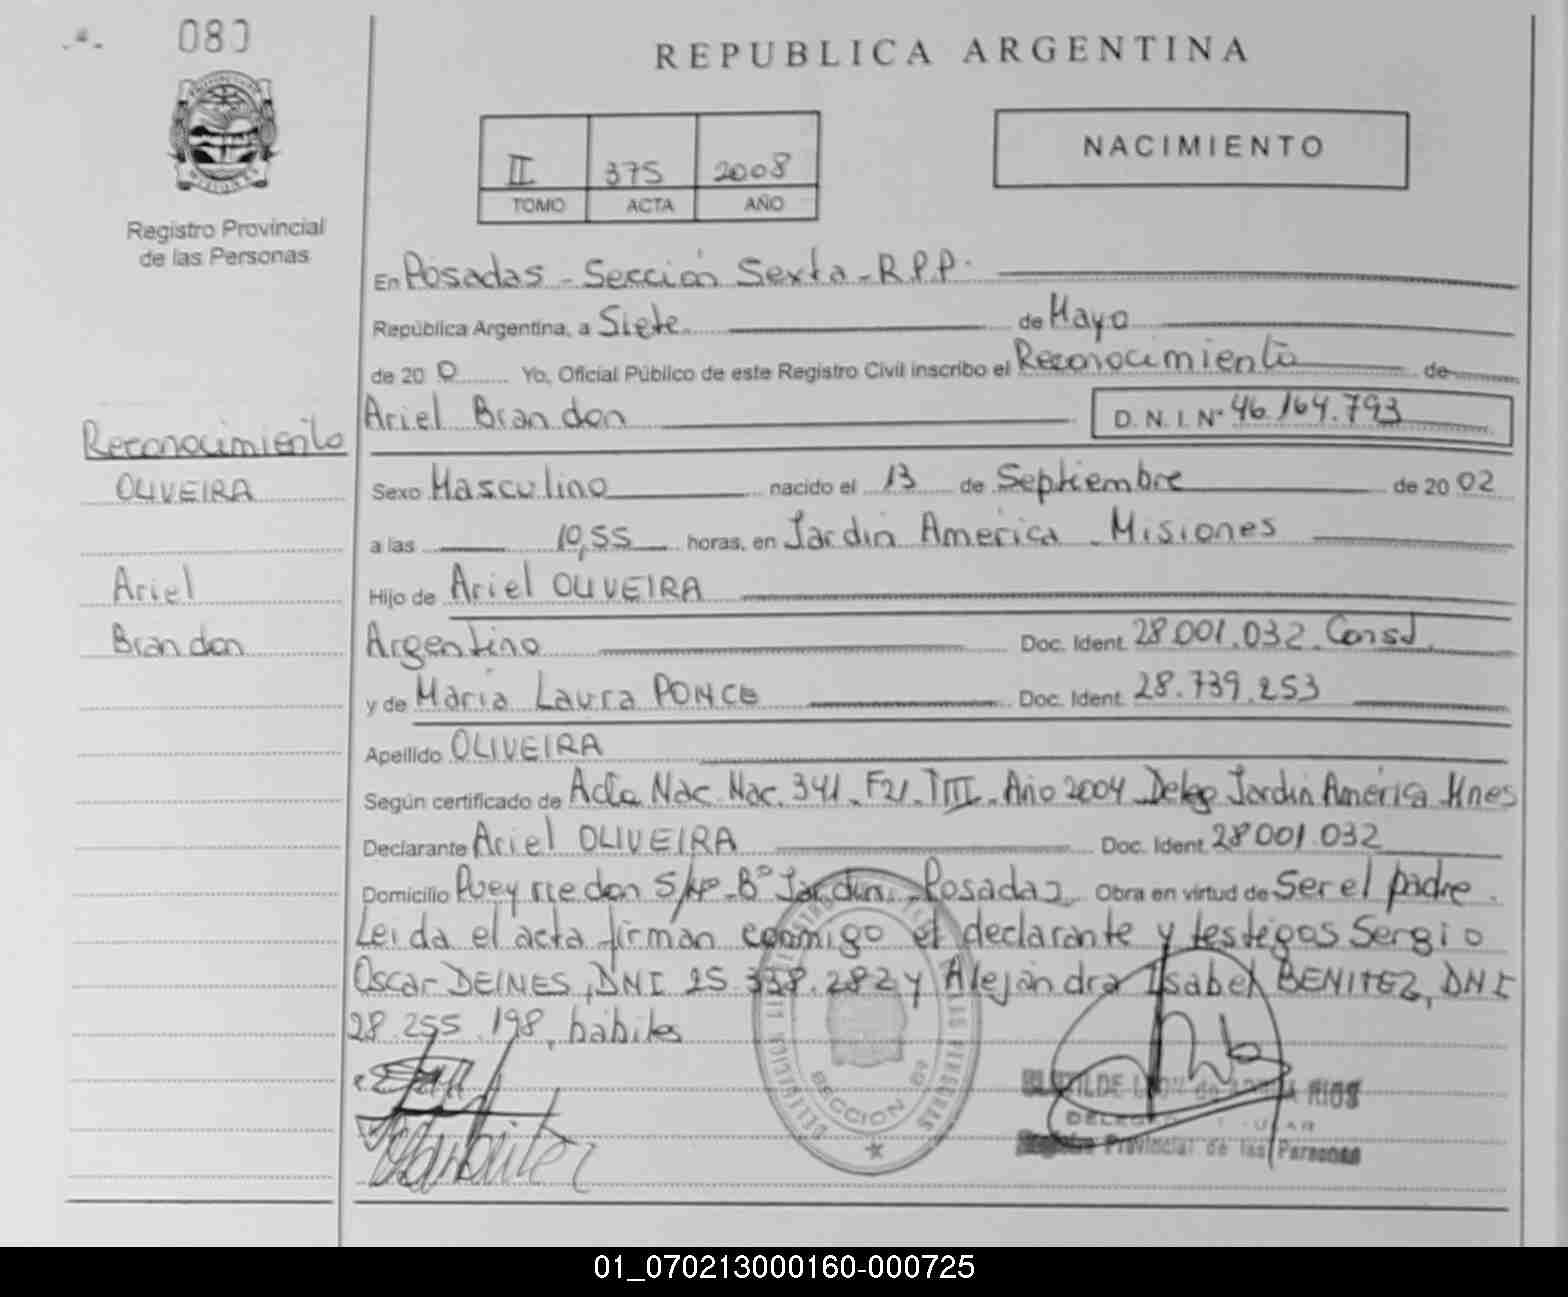 080
REPUBLICA ARGENTINA
II 375 2008
TOMO ACTA AÑO
NACIMIENTO
Registro Provincial
de las Personas
En Posadas - Sección Sexta - R.P.P.
República Argentina, a Siete de Mayo
de 20 0 Yo, Oficial Público de este Registro Civil inscribo el Reconocimiento de
Ariel Brandon D.N.I. Nº 46.164.793
Reconocimiento
OLIVEIRA
Ariel
Brandon
Sexo Masculino nacido el 13 de Septiembre de 20 02
a las 10,55 horas, en Jardin America - Misiones
Hijo de Ariel OLIVEIRA
Argentino Doc. Ident. 28.001.032. Const.
y de Maria Laura PONCE Doc. Ident. 28.739.253
Apellido OLIVEIRA
Según certificado de Acta Nac. Nac. 341 - F21 - TIII - Año 2004 Deleg Jardin América Mnes
Declarante Ariel OLIVEIRA Doc. Ident. 28.001.032
Domicilio Pueyrredon S/Nº - Bº Jardin - Posadas Obra en virtud de Ser el padre.
Leida el acta firman conmigo el declarante y testigos Sergio
Oscar DEINES, DNI 25.338.282 y Alejandra Isabel BENITEZ, DNI
28.255.198, hábiles
SECCION
de las Personas
01_070213000160-000725